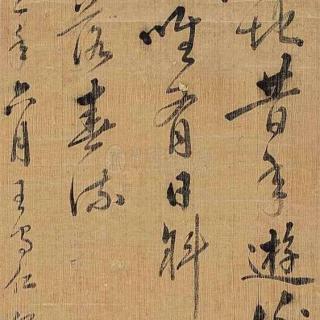 地昔年遊
唯有日斜
落春流
六月王守仁